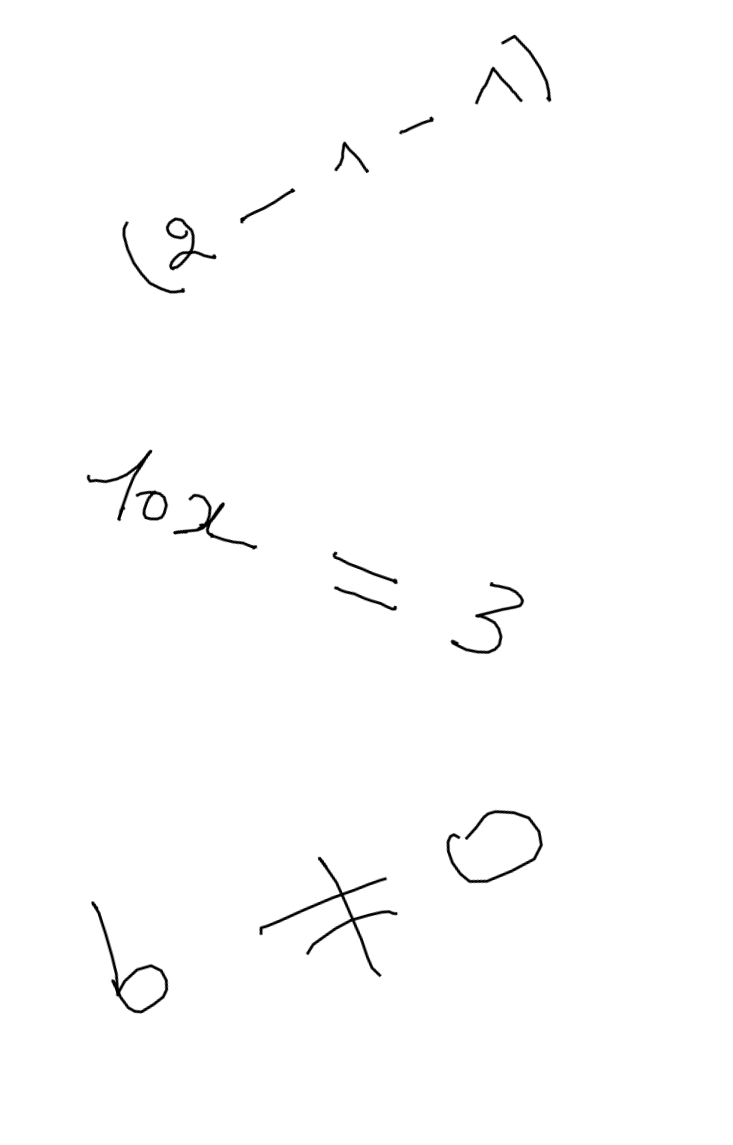 (2 - 1 - 1)
10x = 3
b ≠ 0